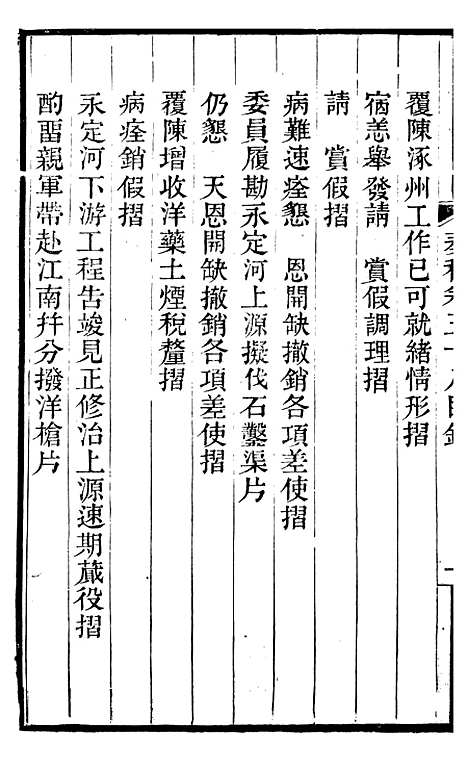 覆陳涿州工作已可就緒情形摺
宿恙舉發請　賞假調理摺
請　賞假摺
病難速痊懇　恩開缺撤銷各項差使摺
委員履勘永定河上源擬伐石鑿渠片
仍懇　天恩開缺撤銷各項差使摺
覆陳增收洋藥土煙稅釐摺
病痊銷假摺
永定河下游工程告竣見正修治上源速期蕆役摺
酌留親軍帶赴江南并分撥洋槍片